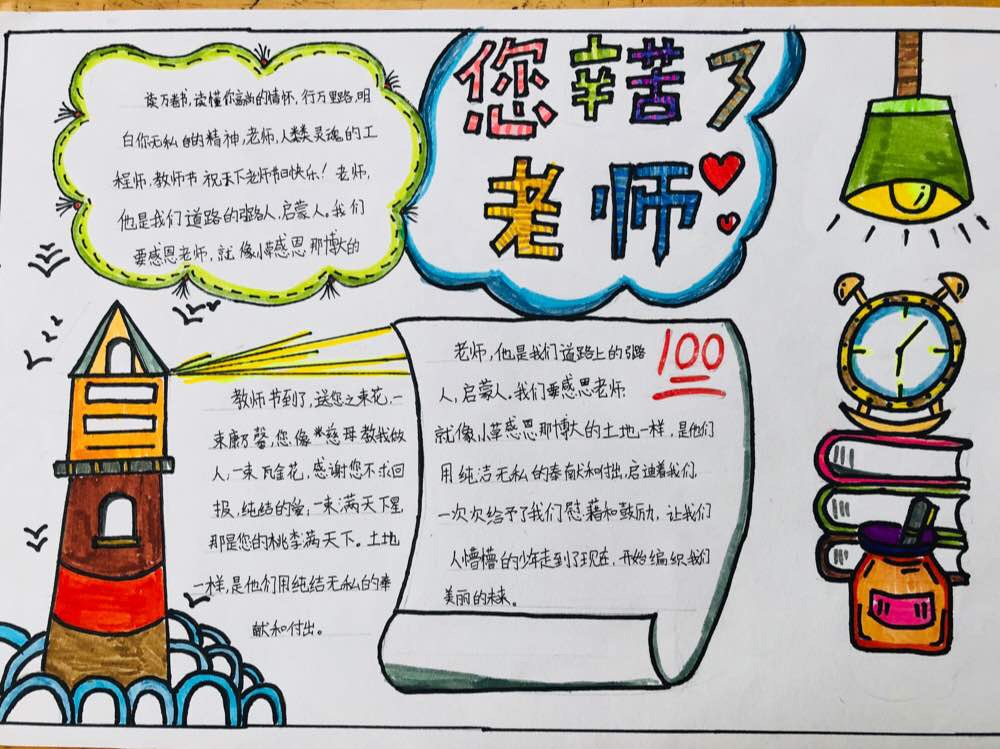 您辛苦了
老师
读万卷书,读懂你高尚的情怀,行万里路,明
白你无私的精神,老师,人类灵魂的工
程师,教师节祝天下老师节日快乐!老师,
他是我们道路的引路人,启蒙人。我们
要感恩老师,就像小草感恩那博大的
教师节到了,送您之束花,一
束康乃馨,您像慈母教我做
人,一束瓦金花,感谢您不求回
报,纯结的爱,一束满天下星
那是您的桃李满天下。土地
一样,是他们用纯结无私的奉
献和付出。
100
老师,他是我们道路上的引路
人,启蒙人。我们要感恩老师.
就像小草感恩那博大的土地一样,是他们
用纯洁无私的奉献和付出,启迪着我们,
一次次给予了我们慰藉和鼓励,让我们
人懵懵的少年走到了现在,开始编织我们
美丽的未来。